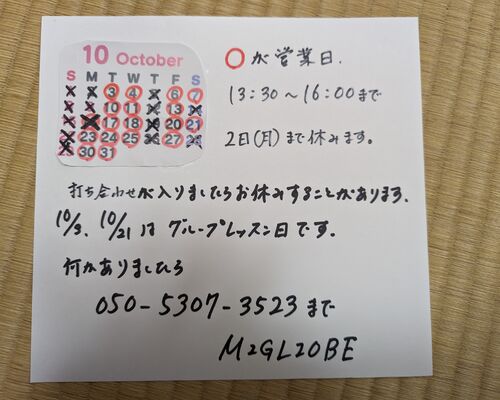 10 October
S M T W T F S
3 4 6 7
10 11 13
17 18 20 21
23 24 25 27
30 31
○が営業日.
13:30〜16:00まで
2日(月)まで休みます。
打ち合わせが入りましたらお休みすることがあります.
10/3、10/21 は グループレッスン日です。
何かありましたら
050-5307-3523まで
M2GL20BE